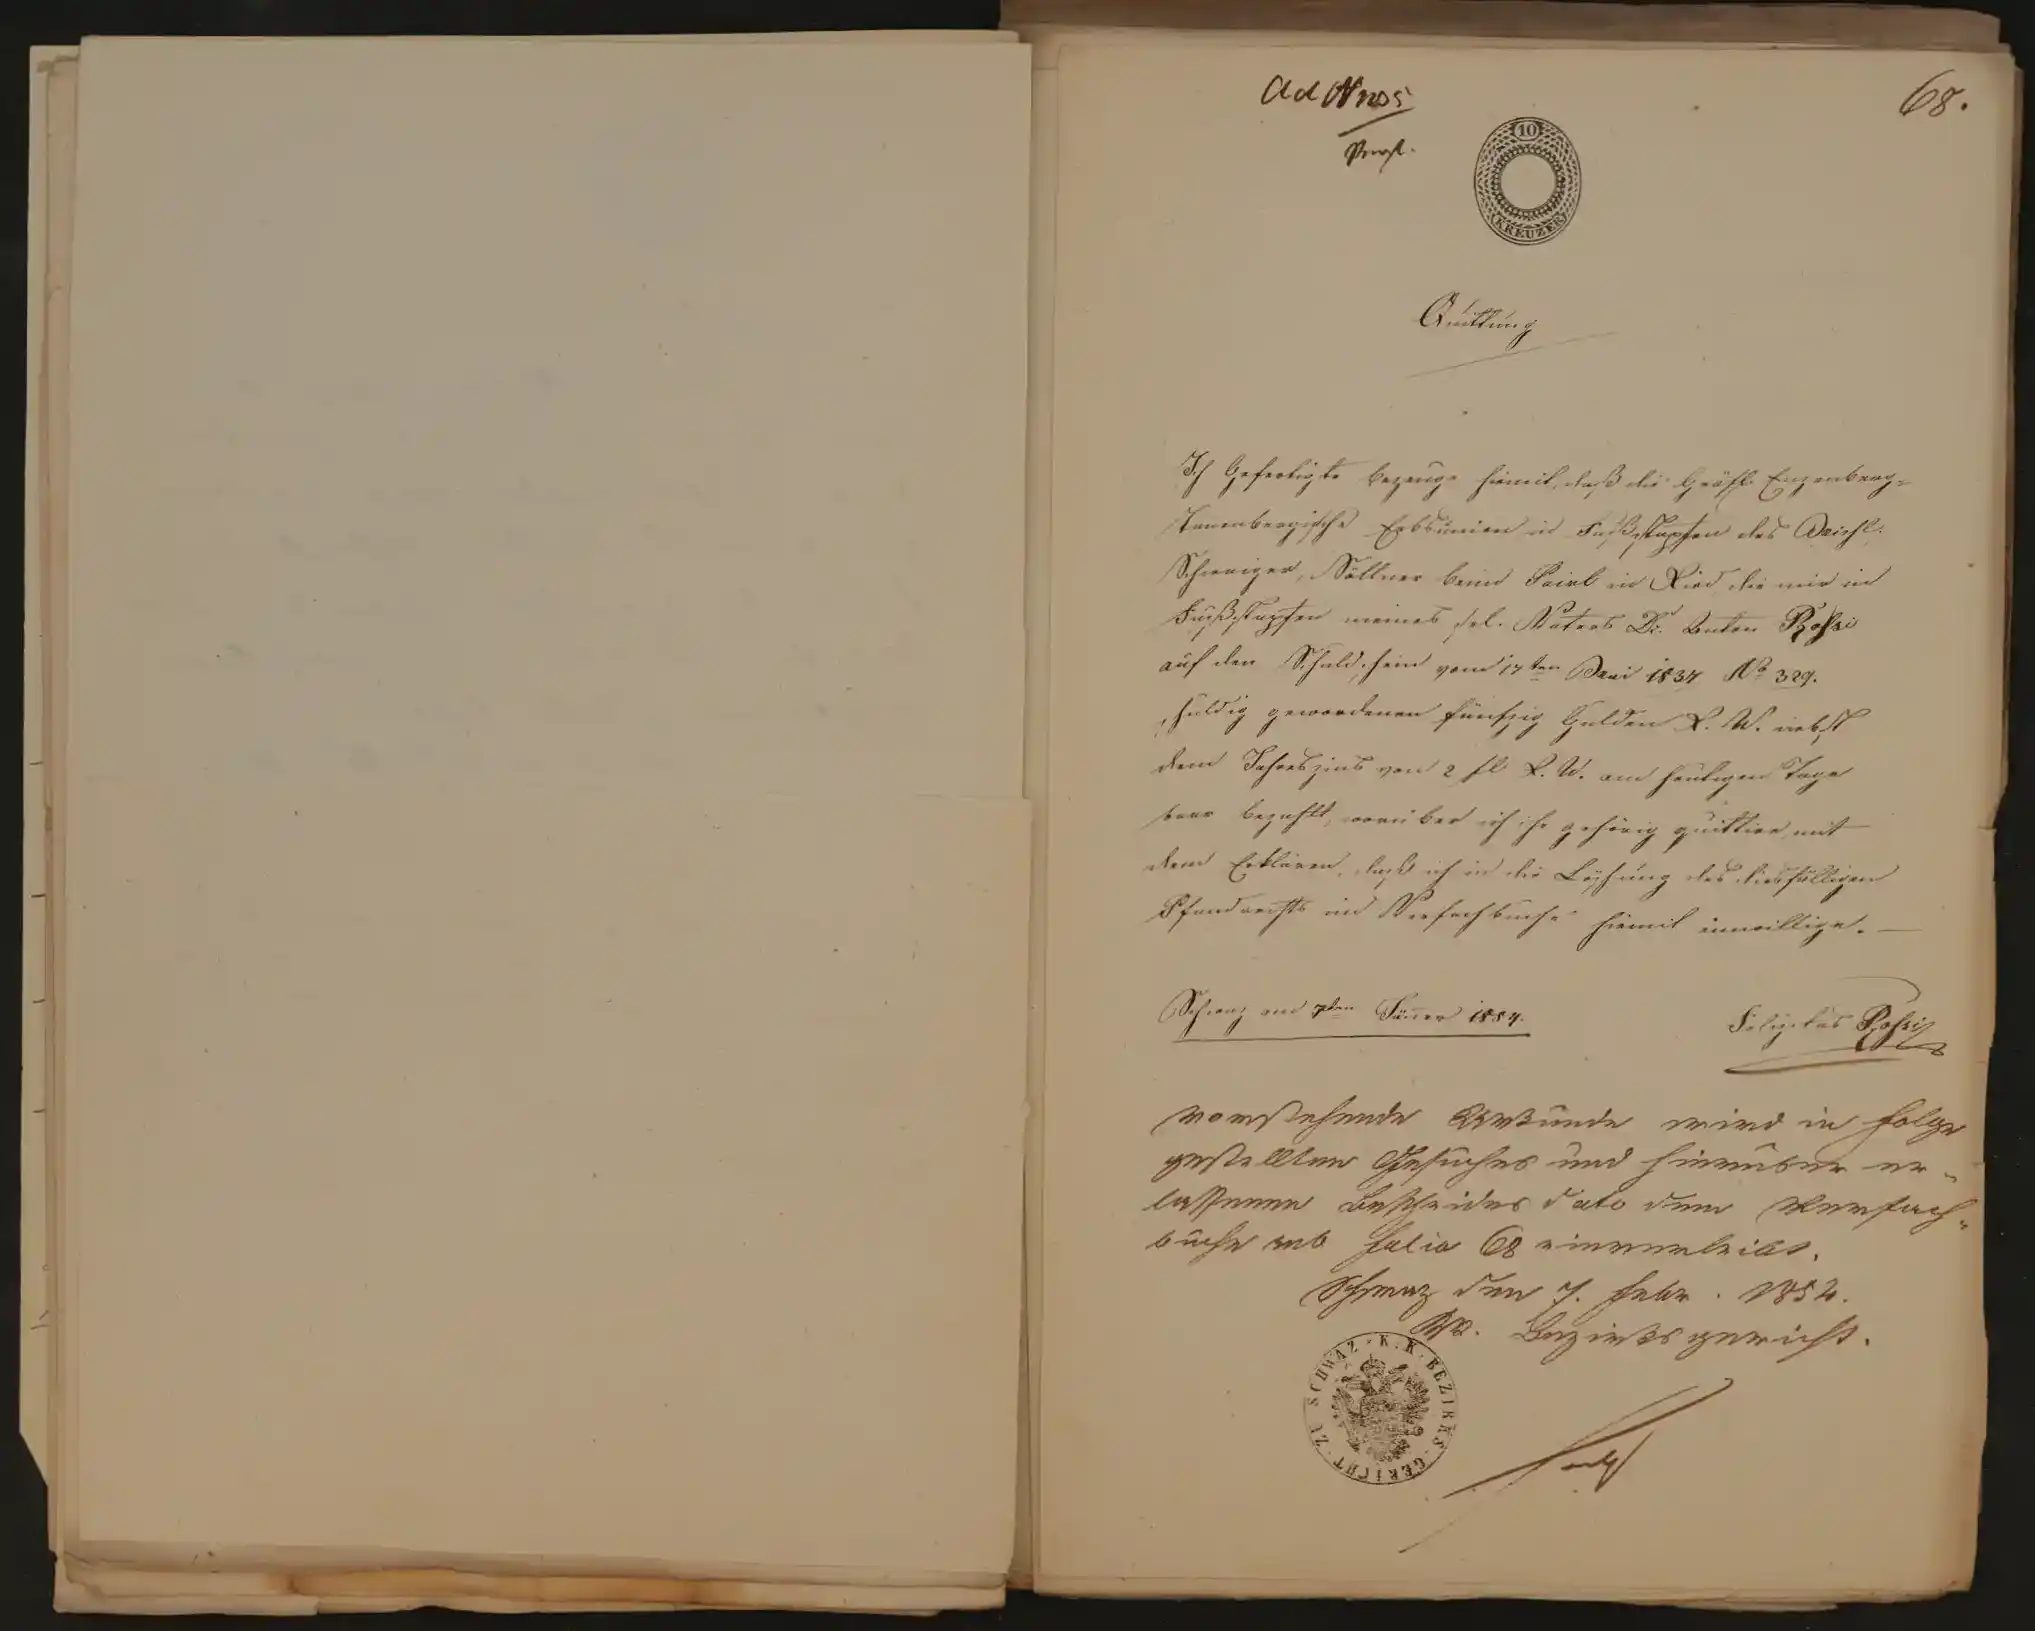 Ad Nro 5
68.
10
KREUZER
Quittung
Ich Gefertigte bezeuge hiemit, daß die Gräfl. Enzenberg-
Tannenbergische Erbsunion in Fußstapfen des
Schwaiger, Söllner beim in Ried, die mir in
Fußstapfen meines sel. Vaters Dr. Anton Rossi
auf den Schuldschein vom 17ten 1837 No 329.
schuldig gewordenen fünfzig Gulden R. W. nebst
dem Jahreszins von 2 fl R. W. am heutigen Tage
baar bezahlt, worüber ich ihr gehörig quittire, mit
dem Erklären, daß ich in die Löschung des diesfälligen
Pfandrechts im Verfachbuche hiemit einwillige. —
Schwaz am 7ten Jäner 1854.
Felizitas Rossi
Vorstehende Urkunde wird in Folge
gestellten Gesuches und hierüber er-
lassenen Bescheides dato dem Verfach-
buche sub folio 68 einverleibt.
Schwaz den 7. Febr. 1854.
KK. Bezirksgericht.
K. K. BEZIRKS-GERICHT ZU SCHWAZ